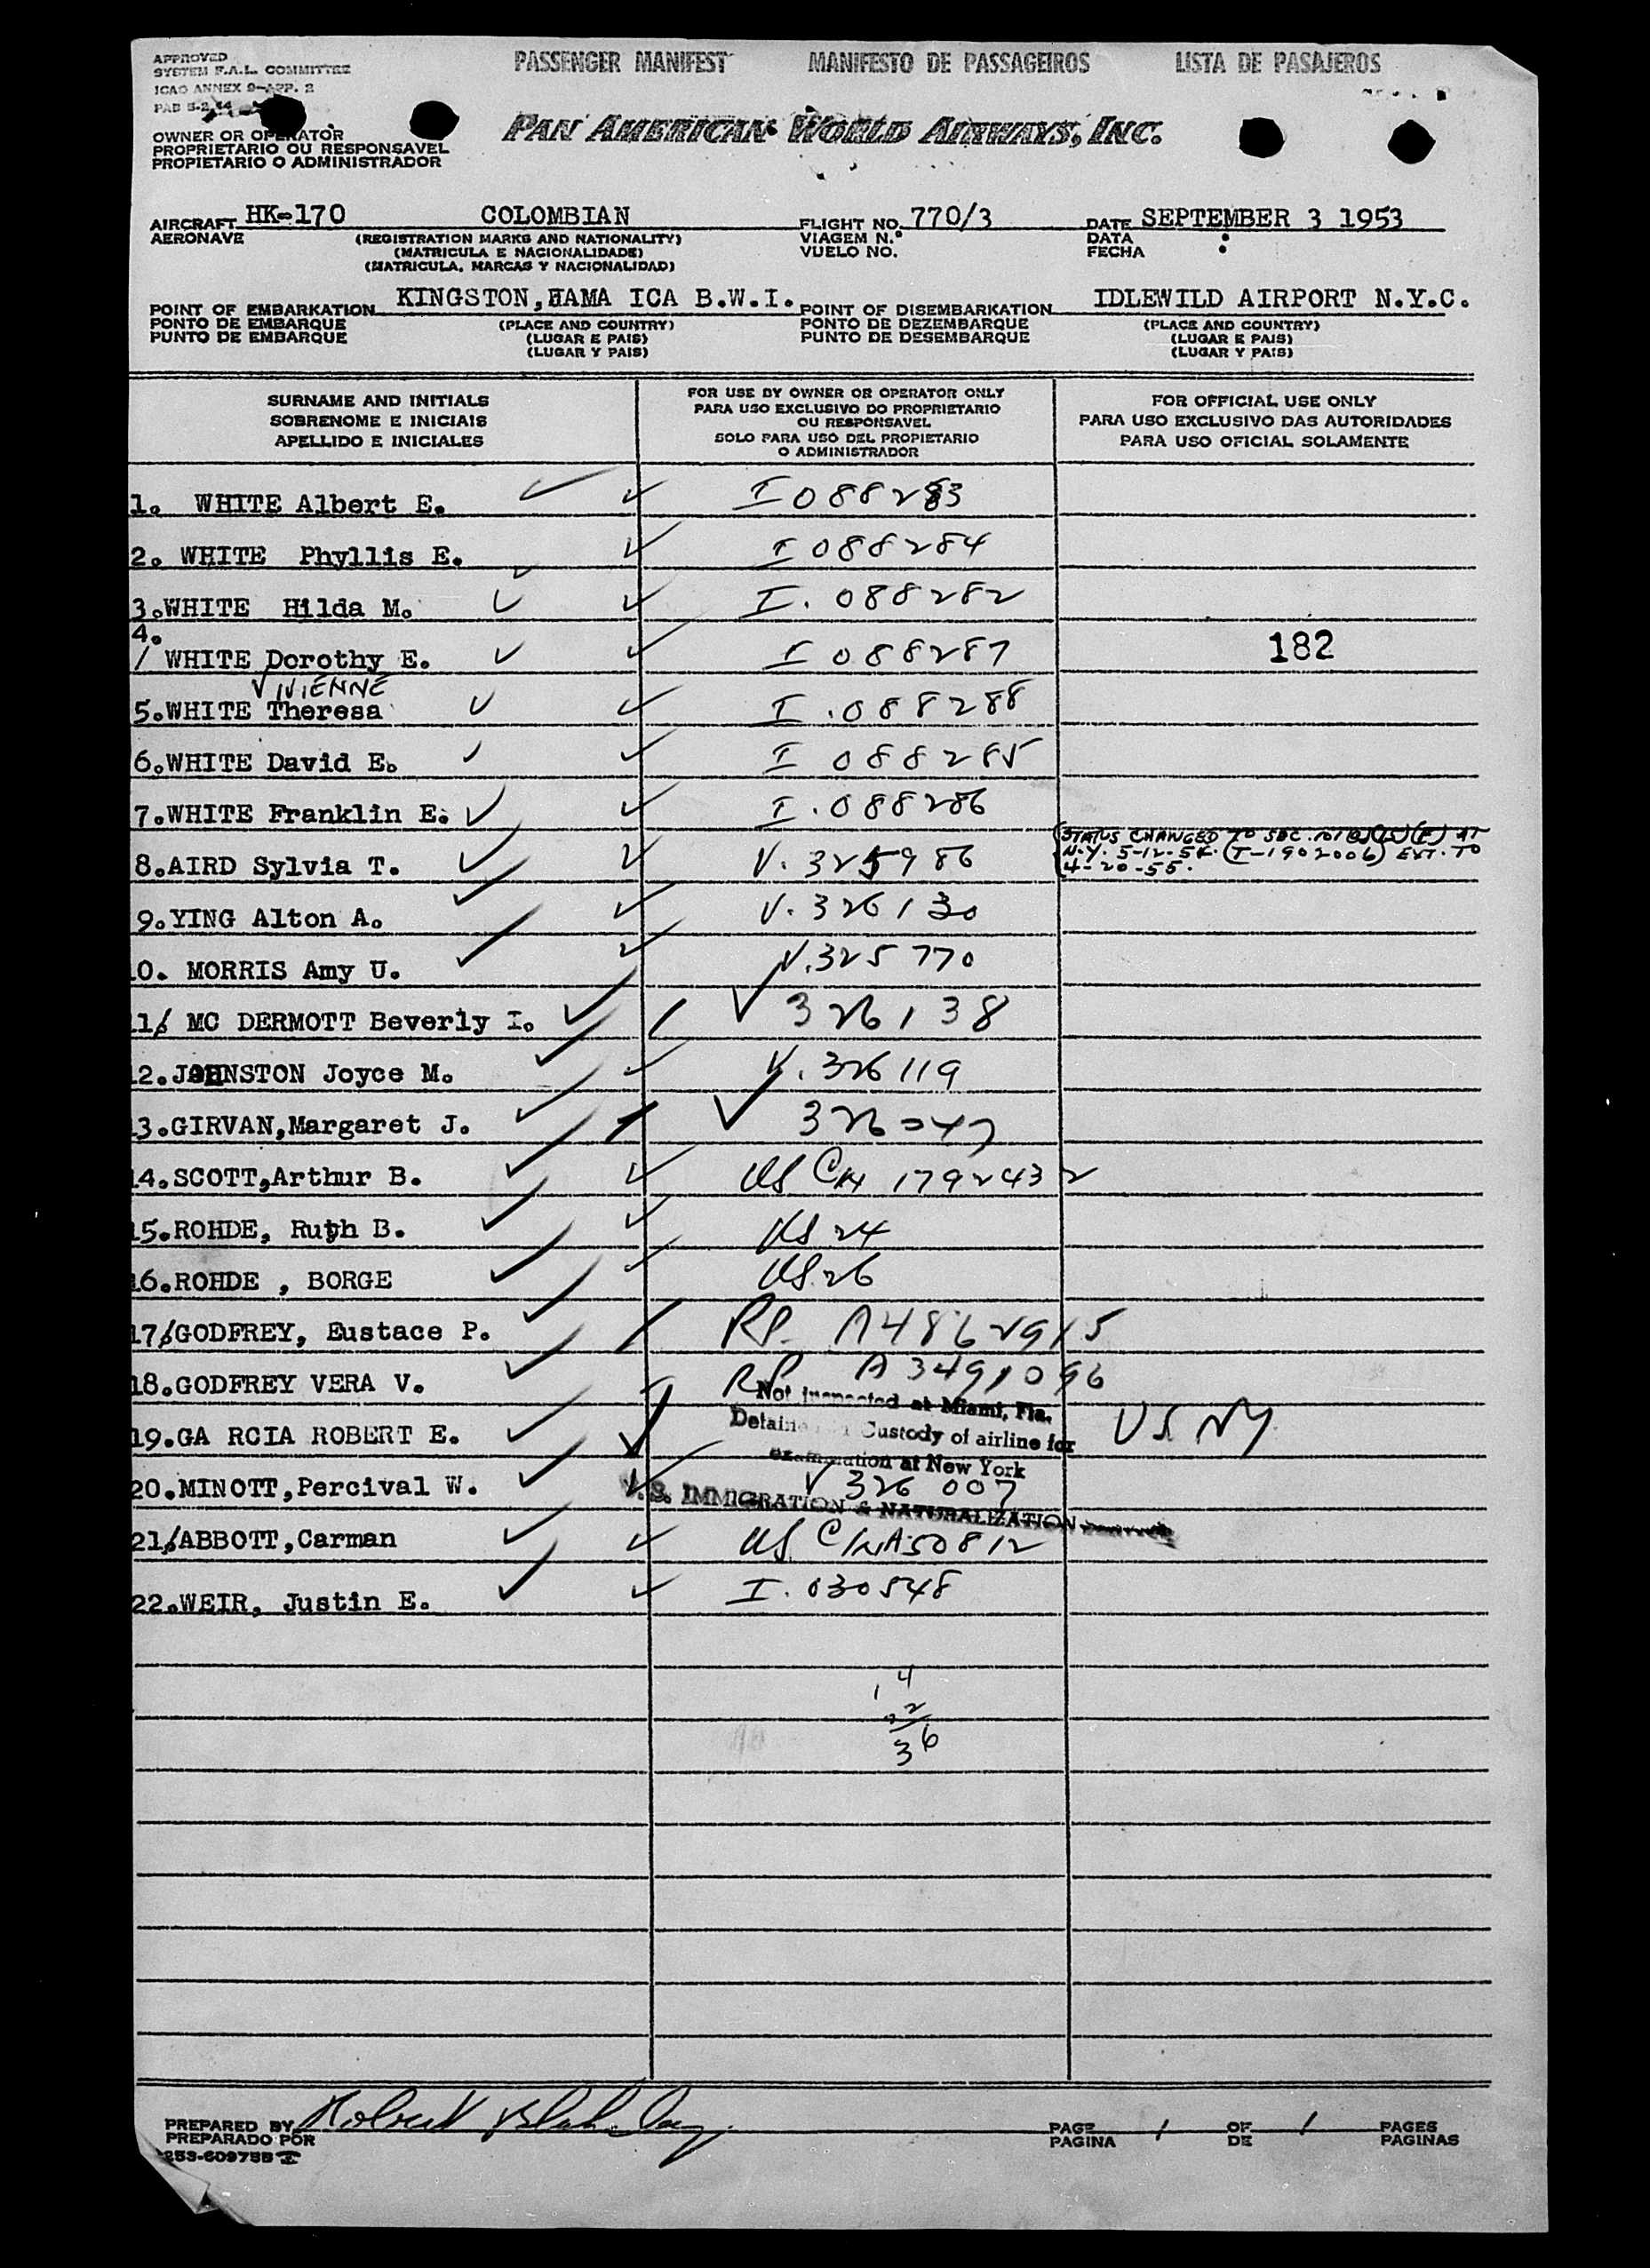 APPROVED
SYSTEM F.A.L. COMMITTEE
ICAO ANNEX 9-APP. 2
PASSENGER MANIFEST MANIFESTO DE PASSAGEIROS LISTA DE PASAJEROS
PAN AMERICAN WORLD AIRWAYS, INC.
OWNER OR OPERATOR
PROPRIETARIO OU RESPONSAVEL
PROPIETARIO O ADMINISTRADOR
AIRCRAFT HK-170 COLOMBIAN FLIGHT NO. 770/3 DATE SEPTEMBER 3 1953
AERONAVE (REGISTRATION MARKS AND NATIONALITY) VIAGEM N.º DATA :
(MATRICULA E NACIONALIDADE) VUELO NO. FECHA :
(MATRICULA, MARCAS Y NACIONALIDAD)
POINT OF EMBARKATION KINGSTON, HAMA ICA B.W.I. POINT OF DISEMBARKATION IDLEWILD AIRPORT N.Y.C.
PONTO DE EMBARQUE (PLACE AND COUNTRY) PONTO DE DEZEMBARQUE (PLACE AND COUNTRY)
PUNTO DE EMBARQUE (LUGAR E PAIS) PUNTO DE DESEMBARQUE (LUGAR E PAIS)
(LUGAR Y PAIS) (LUGAR Y PAIS)
SURNAME AND INITIALS
SOBRENOME E INICIAIS
APELLIDO E INICIALES
FOR USE BY OWNER OR OPERATOR ONLY
PARA USO EXCLUSIVO DO PROPRIETARIO
OU RESPONSAVEL
SOLO PARA USO DEL PROPIETARIO
O ADMINISTRADOR
FOR OFFICIAL USE ONLY
PARA USO EXCLUSIVO DAS AUTORIDADES
PARA USO OFICIAL SOLAMENTE
1. WHITE Albert E. I 088283
2. WHITE Phyllis E. I 088284
3.WHITE Hilda M. I. 088282
4. / WHITE Dorothy E. I 088287 182
VIVIENNE
5.WHITE Theresa I .088288
6.WHITE David E. I 088285
7.WHITE Franklin E. I .088286
8.AIRD Sylvia T. V. 325986
(STATUS CHANGED TO SEC. 101(a)(15)(F) AT
N.Y. 5-12-54. (T-1902006) EXT. TO
4-20-55.
9.YING Alton A. V. 326130
10. MORRIS Amy U. V.325770
11/. MC DERMOTT Beverly I. V 326138
12.JOHNSTON Joyce M. V. 326119
13.GIRVAN,Margaret J. V 326047
14.SCOTT,Arthur B. US CIN 1792432
15.ROHDE, Ruth B. US 24
16.ROHDE , BORGE US 26
17/.GODFREY, Eustace P. RP. A4862915
18.GODFREY VERA V. RP A3491096
Not inspected at Miami, Fla.
19.GA RCIA ROBERT E. US NY
Detained in Custody of airline for
examination at New York
20.MINOTT,Percival W. V 326 007
U.S. IMMIGRATION & NATURALIZATION
21/.ABBOTT,Carman US CINA50812
22.WEIR, Justin E. I. 030548
14
22
36
PREPARED BY Robert
PREPARADO POR
253-609755
PAGE 1 OF 1 PAGES
PAGINA DE PAGINAS